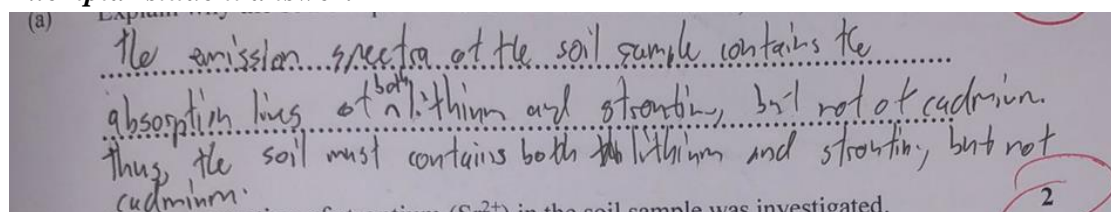 (a)
the emission spectra of the soil sample contains the
absorption lines of both lithium and strontium, but not of cadmium.
thus, the soil must contains both lithium and strontium, but not
cadmium.
2
(Sr²⁺) in the soil sample was investigated.